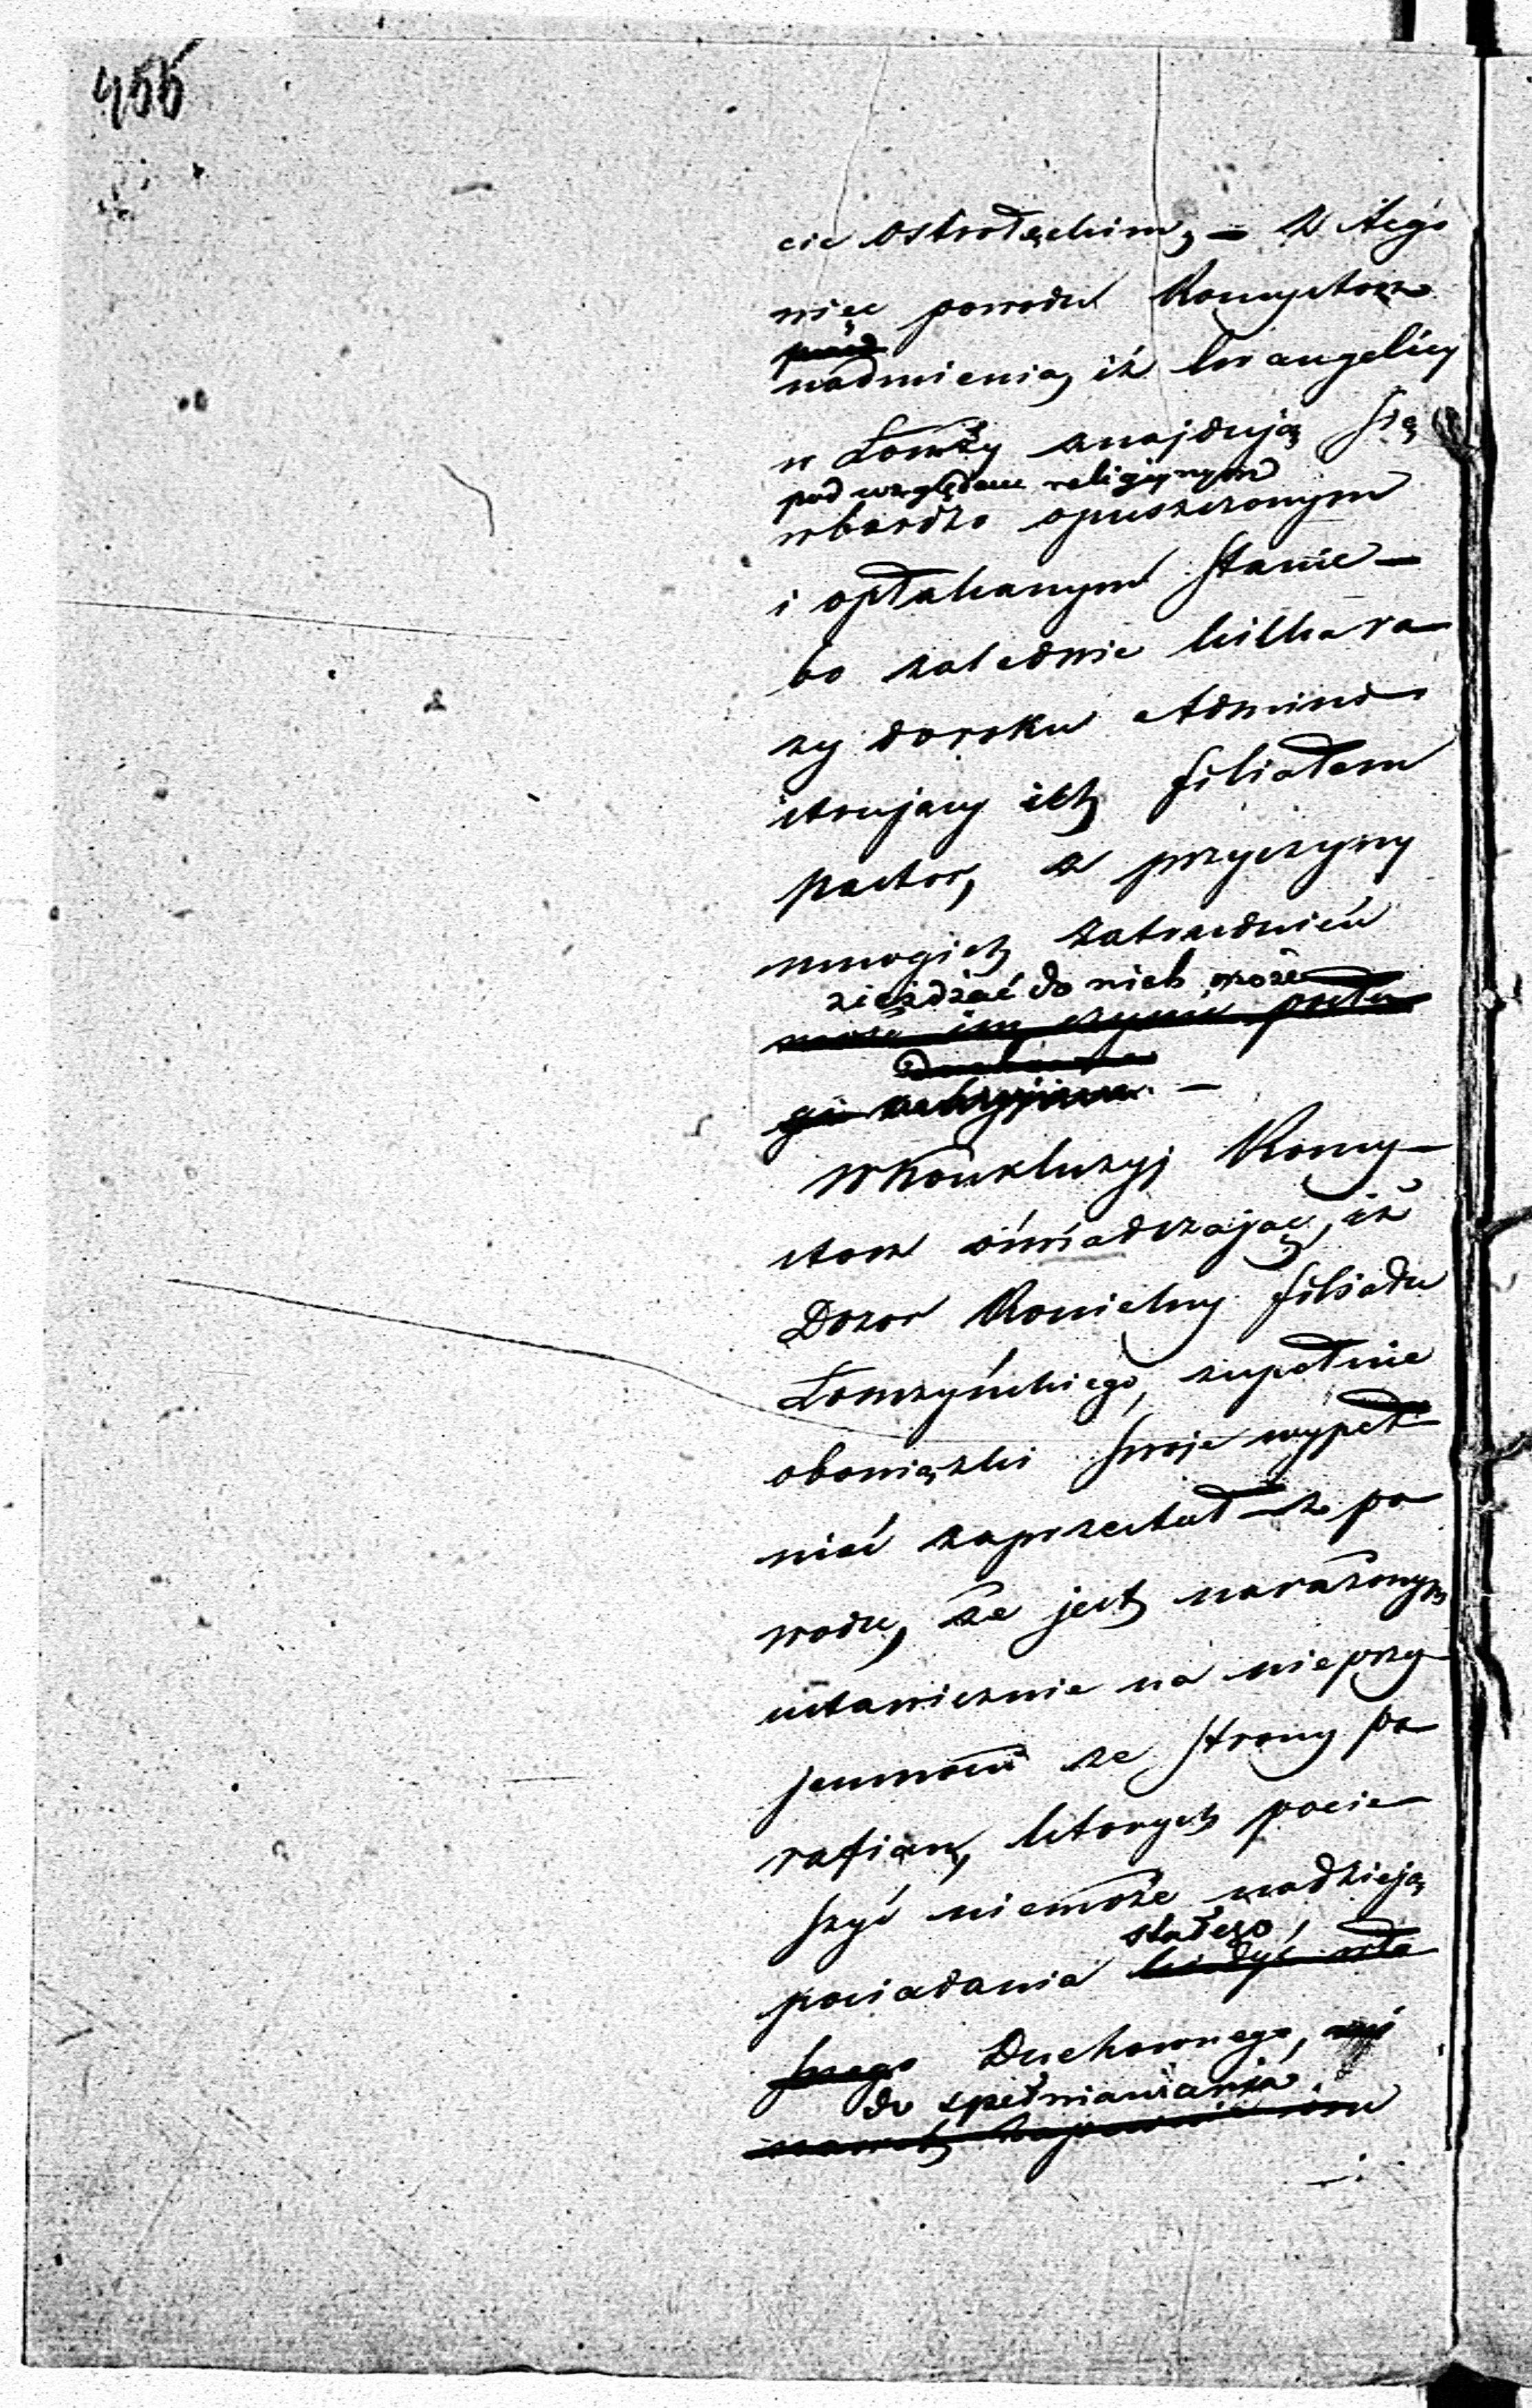 455
cie Ostrołęckim, — Z tego
więc powodu Konsystorz
nadmienia, iż Ewangelicy
w Łomży znajdują się
pod względem religijnym
w bardzo opuszczonym
i opłakanym stanie —
bo zaledwie kilka ra—
zy do roku Admini—
strujący ich filiałem
pastor, z przyczyny
mnogich zatrudnień
zieżdżać do nich może
może im czynić posłu
gi —
W konkluzyj Konsy—
storz oświadczając, iż
Dozor Kościelny filiału
Łomżyńskiego, zupełnie
obowiązki swoje wypeł—
niać zaprzestał — z po
wodu, że jest narażonym
ustawicznie na nieprzy
jemności ze strony pa
rafian, których pocie
szyć niemoże nadzieją
stałego
posiadania kiedyś wła
snego Duchownego,
do spełniania